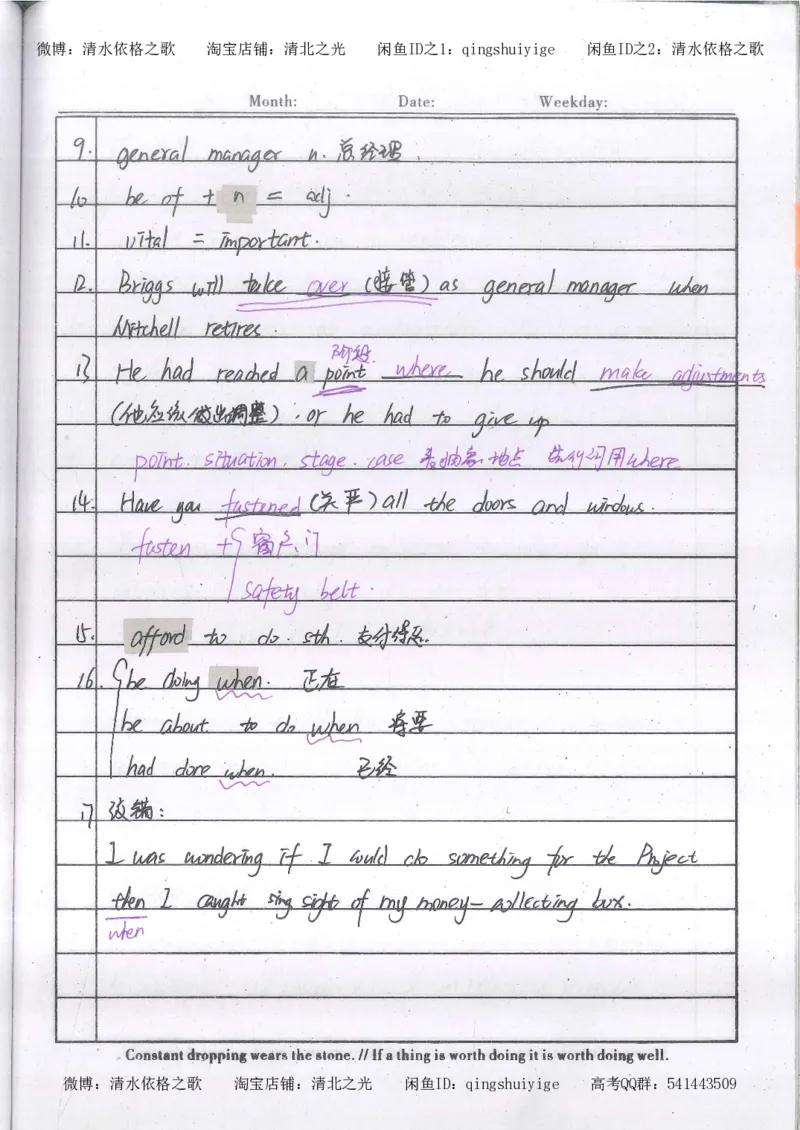 微博：清水依格之歌 淘宝店铺：清北之光 闲鱼ID之1：qingshuiyige 闲鱼ID之2：清水依格之歌
Month: Date: Weekday:
9. general manager n. 总经理.
10 be of + n = adj.
11. vital = important.
12. Briggs will take over (接管) as general manager when
Mitchell retires.
阶段.
13 He had reached a point where he should make adjustments
(他应该做出调整). or he had to give up
point. situation. stage. case 表抽象地点 先行词用where
14. Have you fastened (关严) all the doors and windows.
fasten + { 窗户、门
safety belt.
15. afford to do. sth. 支付得起.
16. { be doing when. 正在
be about to do when 将要
had done when. 已经
17 改错：
I was wondering if I could do something for the Project
then I caught sight of my money-collecting box.
when
Constant dropping wears the stone. // If a thing is worth doing it is worth doing well.
微博：清水依格之歌 淘宝店铺：清北之光 闲鱼ID：qingshuiyige 高考QQ群：541443509